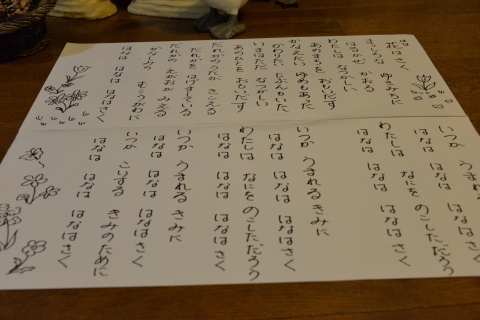 花は さく
まっしろな ゆきみちに
はるかぜ かおる
わたしは なつかしい
あのまちを おもいだす
かなえたい ゆめもあった
かわりたい じぶんもいた
いまはただ なつかしい
あのひとを おもいだす
だれかのうたが きこえる
だれかを はげましている
だれかの えがおが みえる
かなしみの むこうがわに
はなは はなは はなはさく
いつか うまれ
はなは はなは はなはさく
わたしは なにを のこしただろう
はなは はなは はなはさく
いつか うまれる きみに
はなは はなは はなはさく
わたしは なにを のこしただろう
はなは はなは はなはさく
いつか うまれる きみに
はなは はなは はなはさく
いつか こいする きみのために
はなは はなは はなはさく